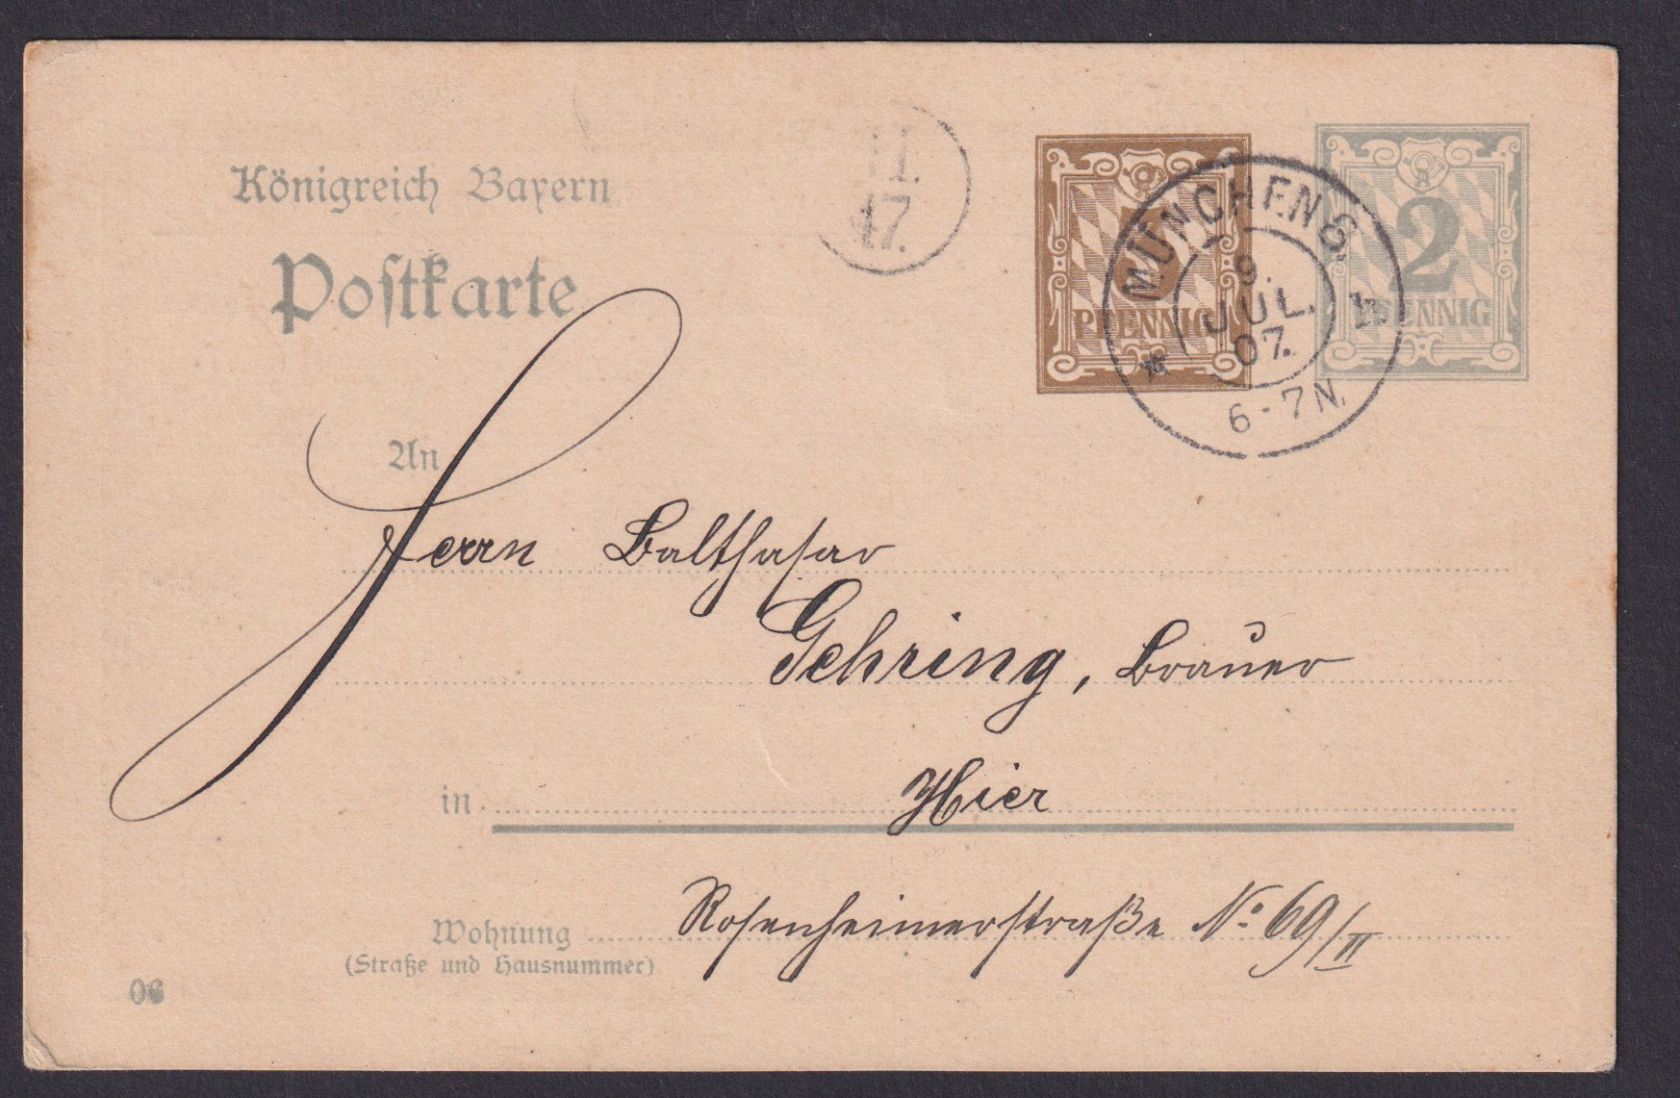 Königreich Bayern
Postkarte
11.
47.
3
PFENNIG
2
PFENNIG
MÜNCHEN 8.
9.
JUL.
07.
II.
6-7 N.
An
Herrn Balthasar
Gehring, Brauer
in Hier
Wohnung Rosenheimerstraße No. 69/II
(Straße und Hausnummer)
06